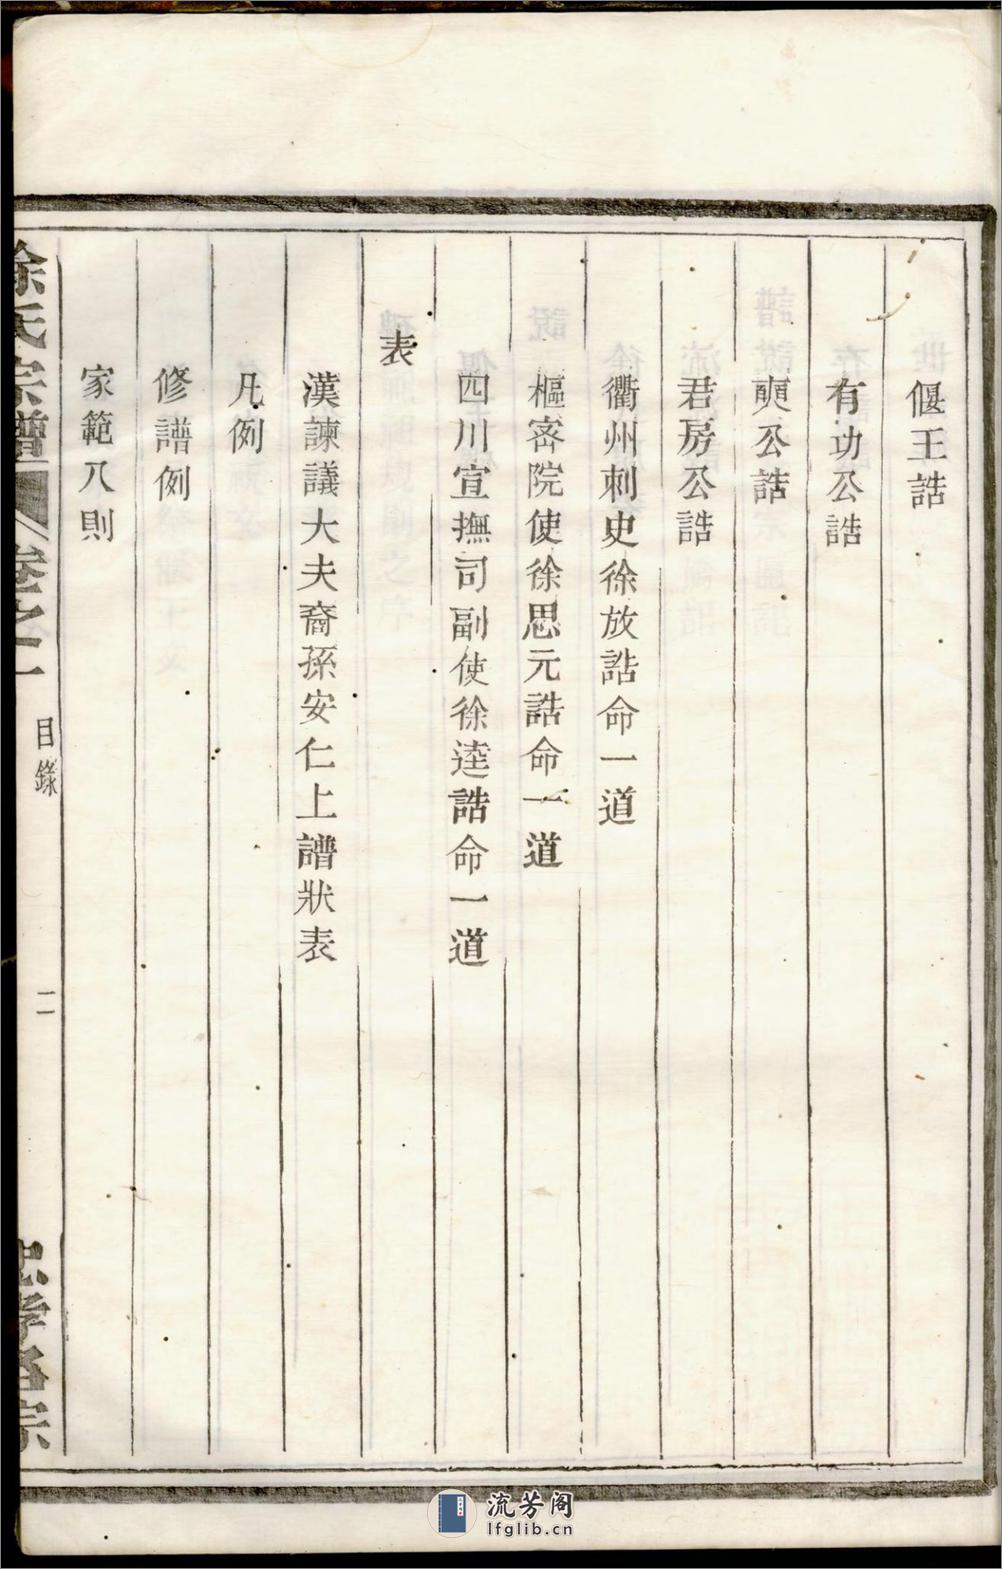 偃王誥
有功公誥
奭公誥
君房公誥
衢州刺史徐放誥命一道
樞密院使徐思元誥命一道
四川宣撫司副使徐逵誥命一道
表
漢諫議大夫裔孫安仁上譜狀表
凡例
修譜例
家範八則
徐氏宗譜
卷之一
目錄
二
流芳阁
lfglib.cn